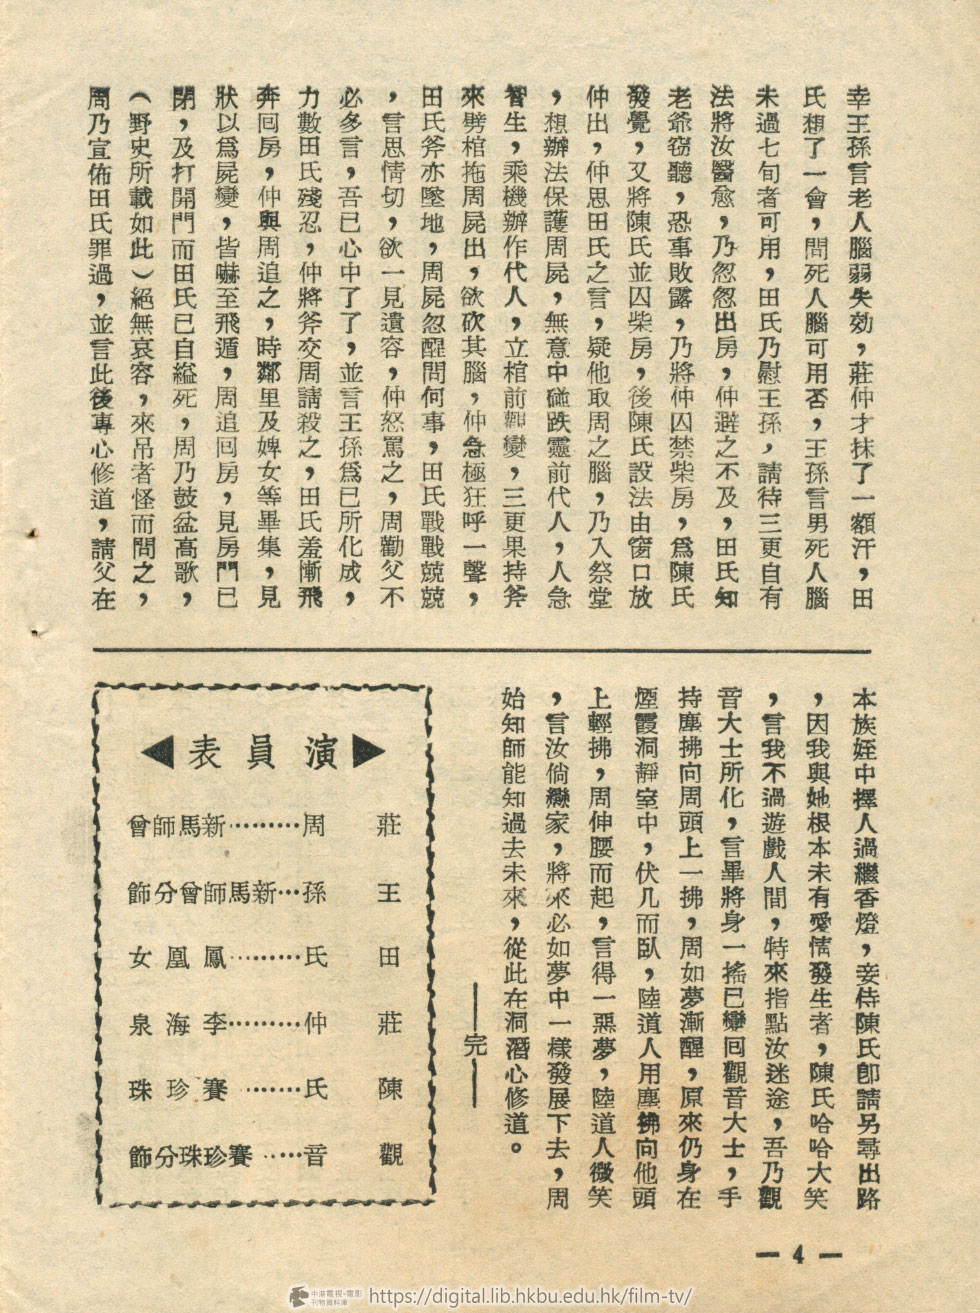 幸王孫言老人腦弱失効，莊仲才抹了一額汗，田
氏想了一會，問死人腦可用否，王孫言男死人腦
未過七旬者可用，田氏乃慰王孫，請待三更自有
法將汝醫愈，乃忽忽出房，仲避之不及，田氏知
老爺窃聽，恐事敗露，乃將仲囚禁柴房，爲陳氏
發覺，又將陳氏並囚柴房，後陳氏設法由窗口放
仲出，仲思田氏之言，疑他取周之腦，乃入祭堂
，想辦法保護周屍，無意中碰跌靈前代人，人急
智生，乘機辦作代人，立棺前觀變，三更果持斧
來劈棺拖周屍出，欲砍其腦，仲急極狂呼一聲，
田氏斧亦墜地，周屍忽醒問何事，田氏戰戰兢兢
，言思情切，欲一見遺容，仲怒罵之，周勸父不
必多言，吾已心中了了，並言王孫爲已所化成，
力數田氏殘忍，仲將斧交周請殺之，田氏羞慚飛
奔回房，仲與周追之，時鄰里及婢女等畢集，見
狀以爲屍變，皆嚇至飛遁，周追回房，見房門已
閉，及打開門而田氏已自縊死，周乃鼓盆高歌，
（野史所載如此）絕無哀容，來吊者怪而問之，
周乃宣佈田氏罪過，並言此後專心修道，請父在
本族姪中擇人過繼香燈，妾侍陳氏卽請另尋出路
，因我與她根本未有愛情發生者，陳氏哈哈大笑
，言我不過遊戲人間，特來指點汝迷途，吾乃觀
音大士所化，言畢將身一搖已變回觀音大士，手
持塵拂向周頭上一拂，周如夢漸醒，原來仍身在
煙霞洞靜室中，伏几而臥，陸道人用塵拂向他頭
上輕拂，周伸腰而起，言得一惡夢，陸道人微笑
，言汝倘戀家，將來必如夢中一樣發展下去，周
始知師能知過去未來，從此在洞潛心修道。
——完——
▶演員表◀
莊周………新馬師曾
王孫…新馬師曾分飾
田氏………鳳凰女
莊仲………李海泉
陳氏………賽珍珠
觀音……賽珍珠分飾
— 4 —
中港電視・電影
刊物資料庫
https://digital.lib.hkbu.edu.hk/film-tv/